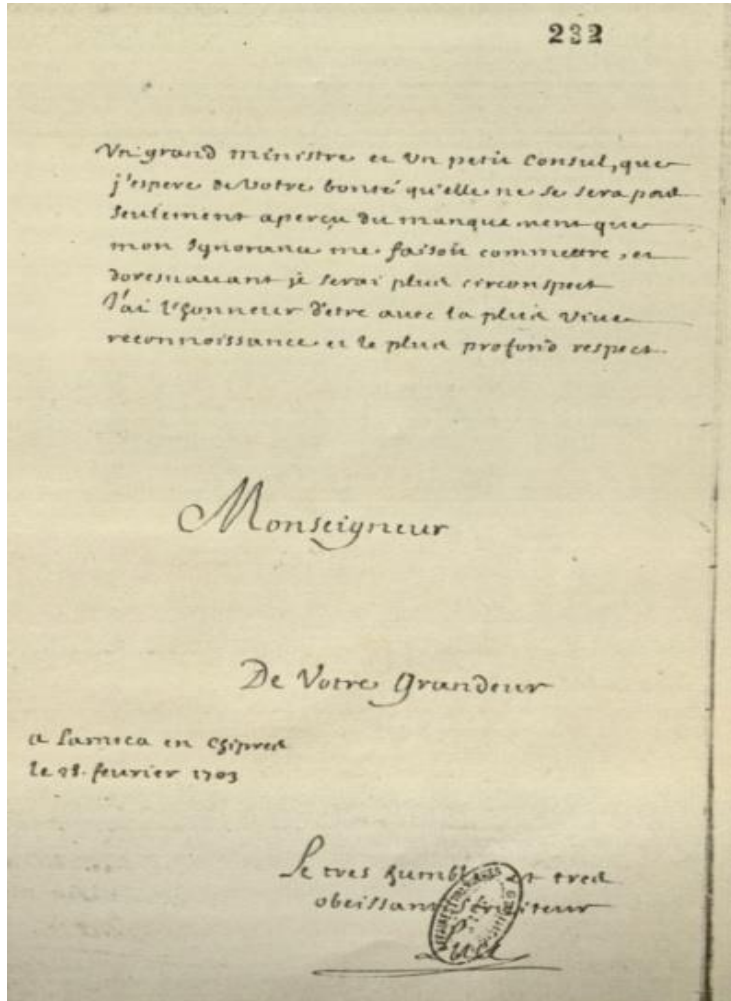 232
Un grand ministre et un petit Consul, que
j'espere de Votre bonté qu'elle ne se sera pas
seulement aperçu du manquement que
mon Ignorance me faisoit commettre, et
doresnavant je serai plus circonspect
J'ai l'honneur d'etre avec la plus vive
reconnoissance et le plus profond respect
Monseigneur
De Votre Grandeur
a Larneca en Chipres
le 28. fevrier 1703
Le tres humble et tres
obeissant serviteur
AFFAIRES ETRANGERES